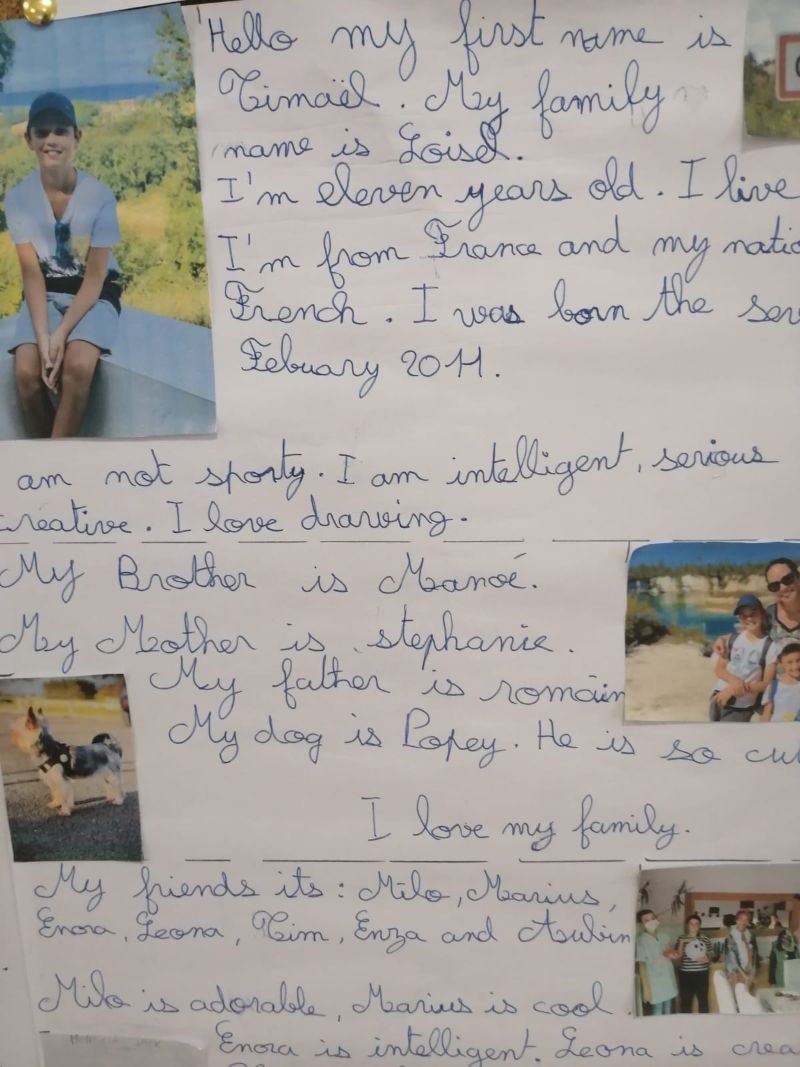 Hello my first name is
Timaël. My family
name is Loisel.
I'm eleven years old. I live
I'm from France and my natio
French. I was born the sev
Febuary 2011.
am not sporty. I am intelligent, serious
creative. I love drawing.
My Brother is Manoé.
My Mother is stephanie.
My father is romain
My dog is Popey. He is so cu
I love my family.
My friends its: Milo, Marius,
Enora, Leona, Tim, Enza and Aubin
Milo is adorable, Marius is cool
Enora is intelligent. Leona is crea